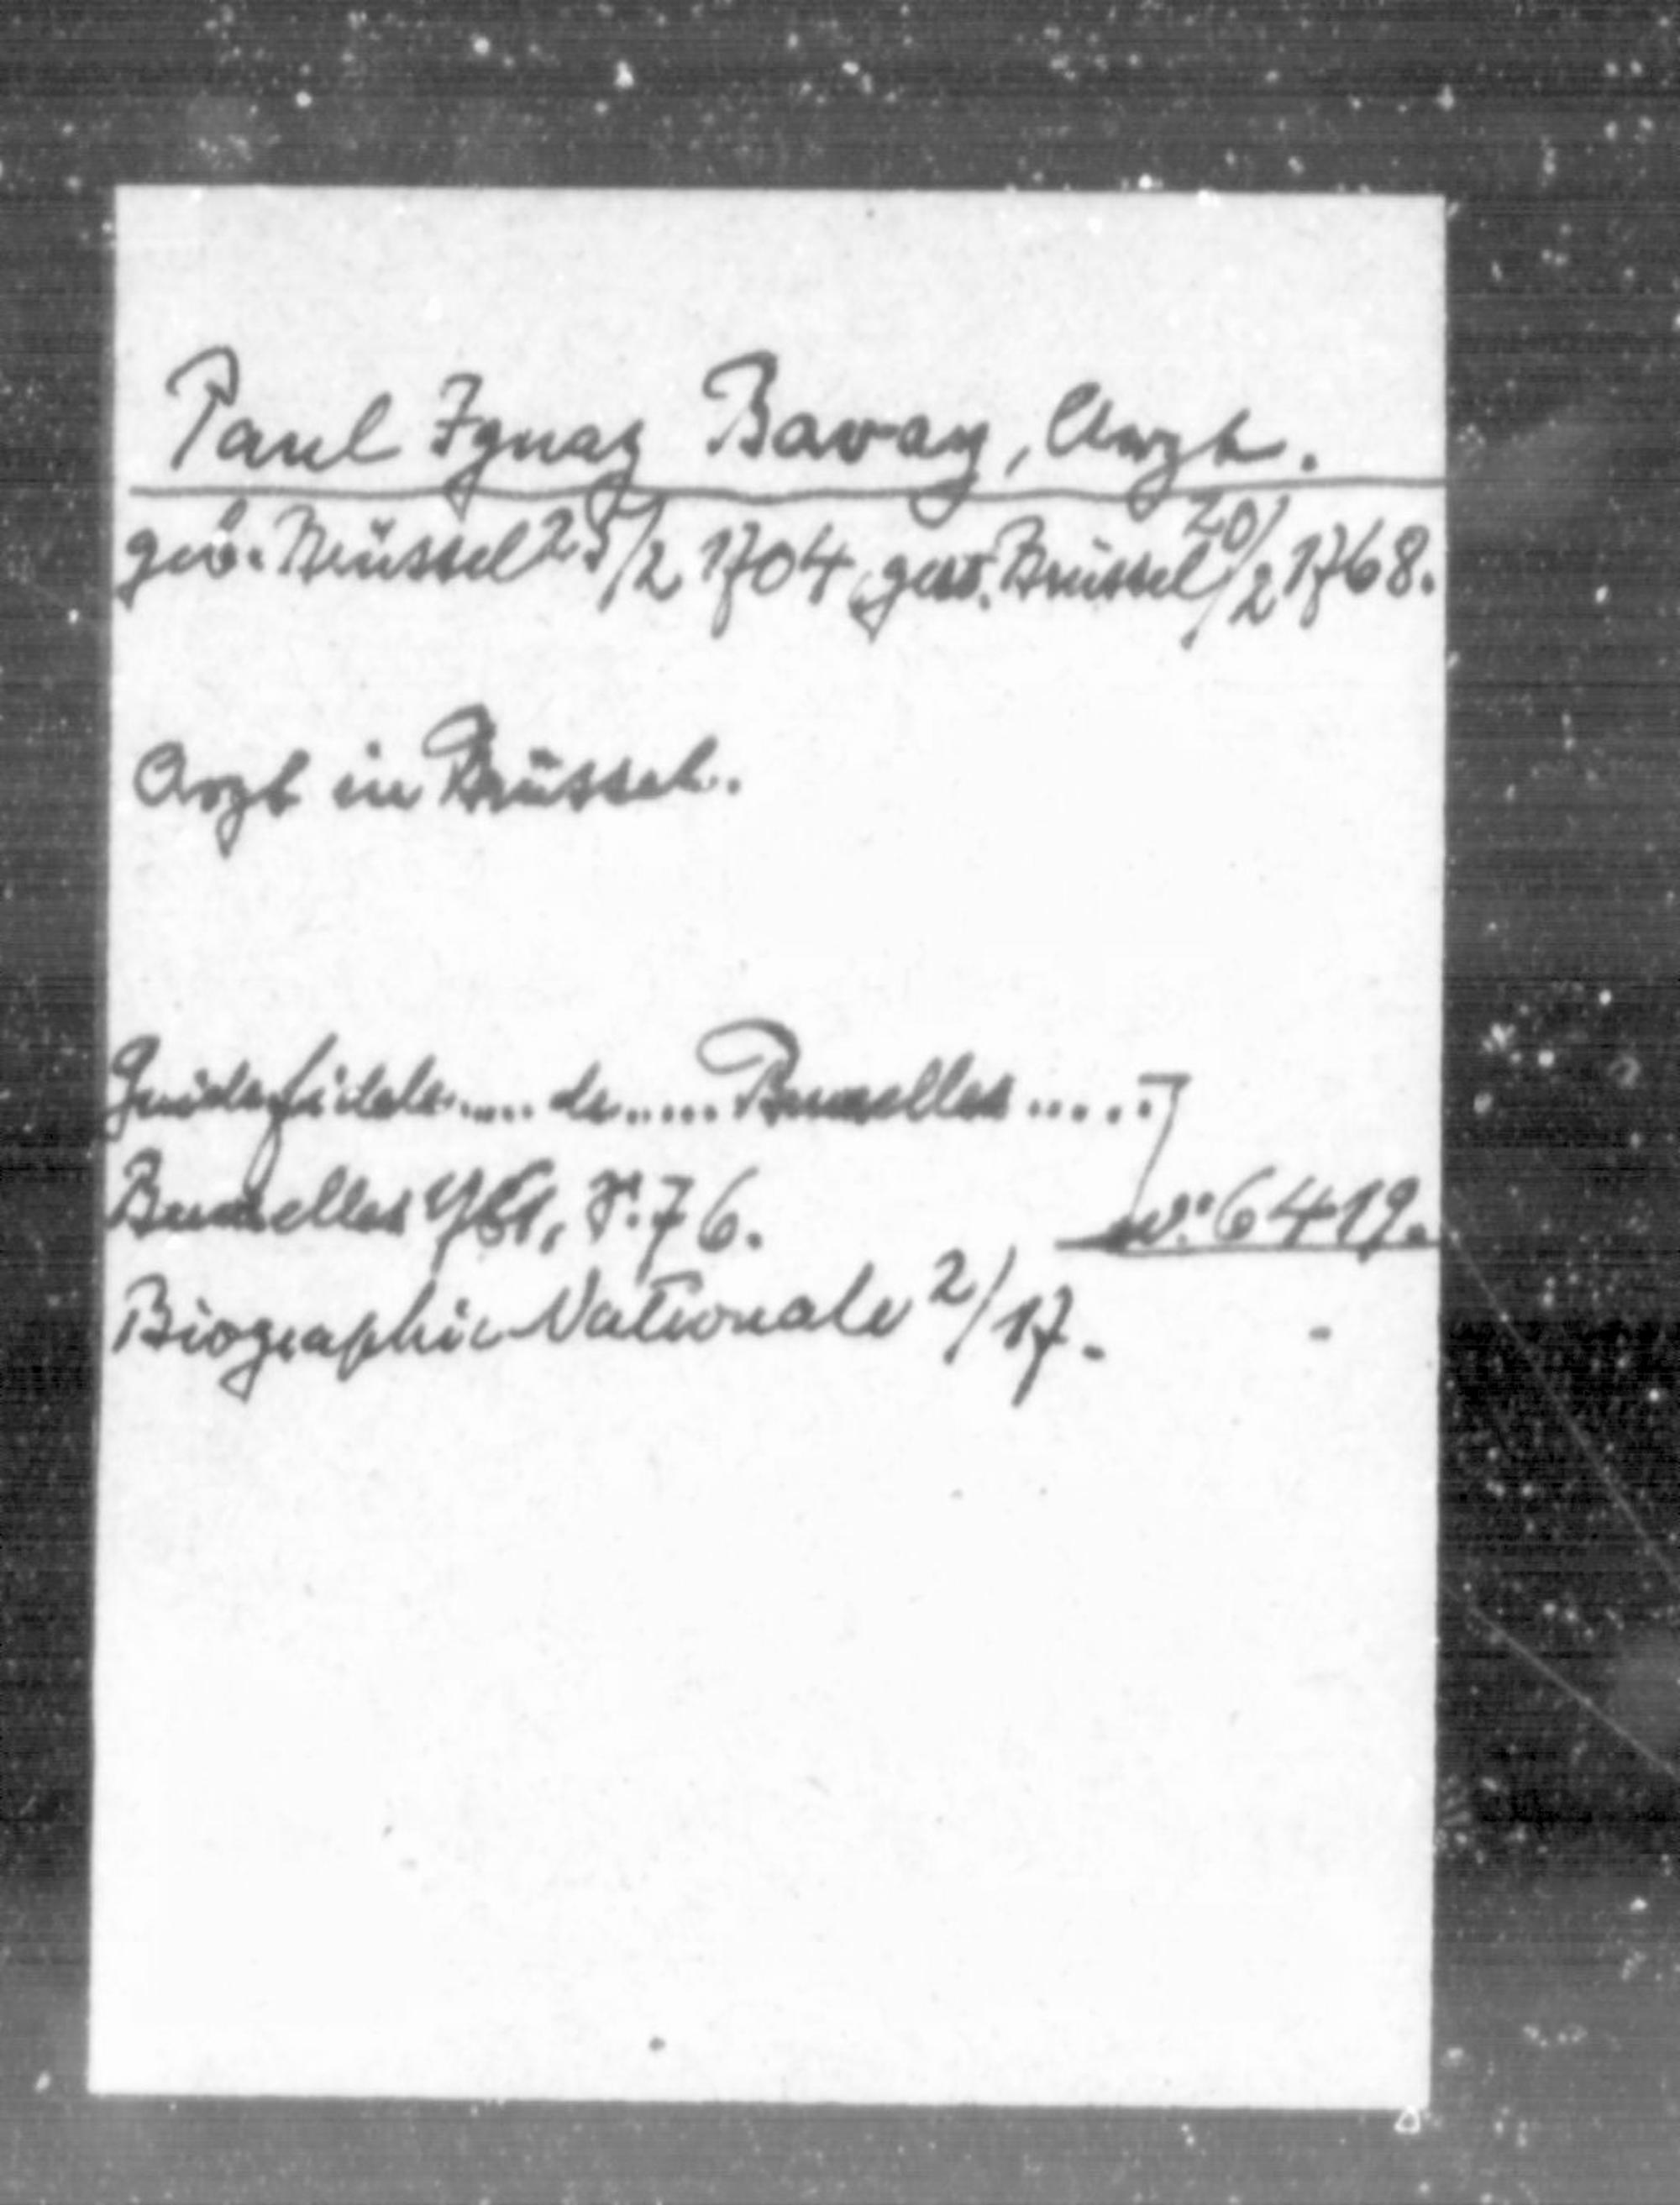 Paul Ignaz Bavay, Arzt.
geb. Brüssel 25/2 1704, gest. Brüssel 20/2 1768.
Arzt in Brüssel.
Guide fidèle..... de..... Bruxelles.....
Bruxelles 1761, S. 76.
N: 6419.
Biographie Nationale 2/17.